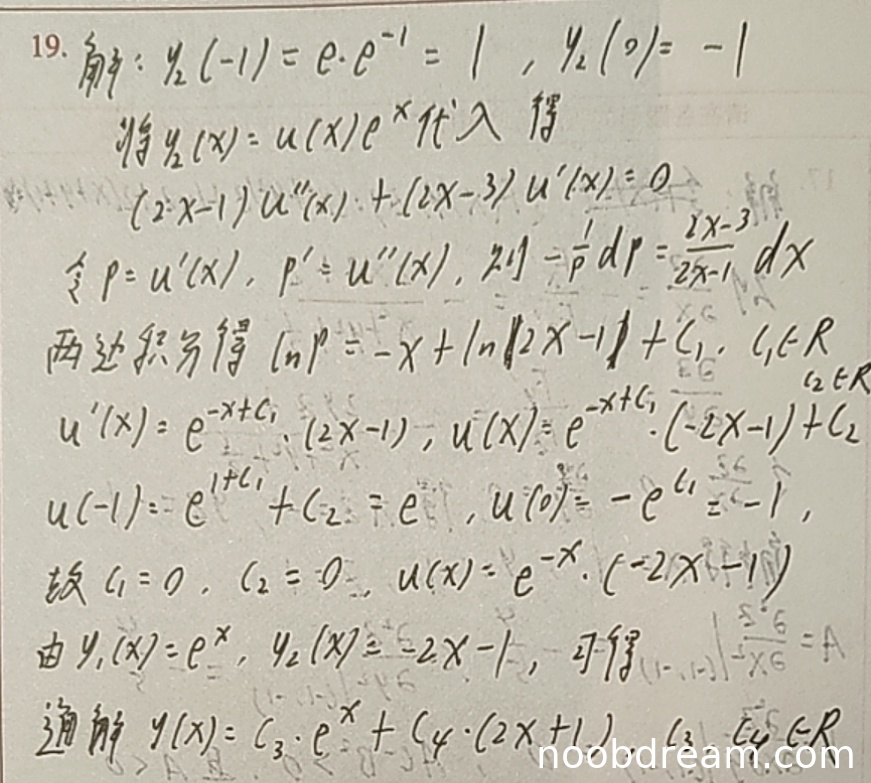 19. 解: y₂(-1) = e·e⁻¹ = 1 , y₂(0) = -1
将y₂(x) = u(x)eˣ代入 得
(2x-1)u''(x) + (2x-3)u'(x) = 0
令p=u'(x), p'=u''(x), 则 -1/p dp = (2x-3)/(2x-1) dx
两边积分得 ln p = -x + ln|2x-1| + C₁, C₁∈R
C₂∈R
u'(x) = e^(-x+C₁)·(2x-1), u(x) = e^(-x+C₁)·(-2x-1)+C₂
u(-1) = e^(1+C₁) + C₂ = e, u(0) = -e^C₁ = -1,
故 C₁=0, C₂=0, u(x) = e⁻ˣ·(-2x-1)
由 y₁(x)=eˣ, y₂(x) = -2x-1, 可得
通解 y(x) = C₃·eˣ + C₄·(2x+1), C₃, C₄∈R
noobdream.com